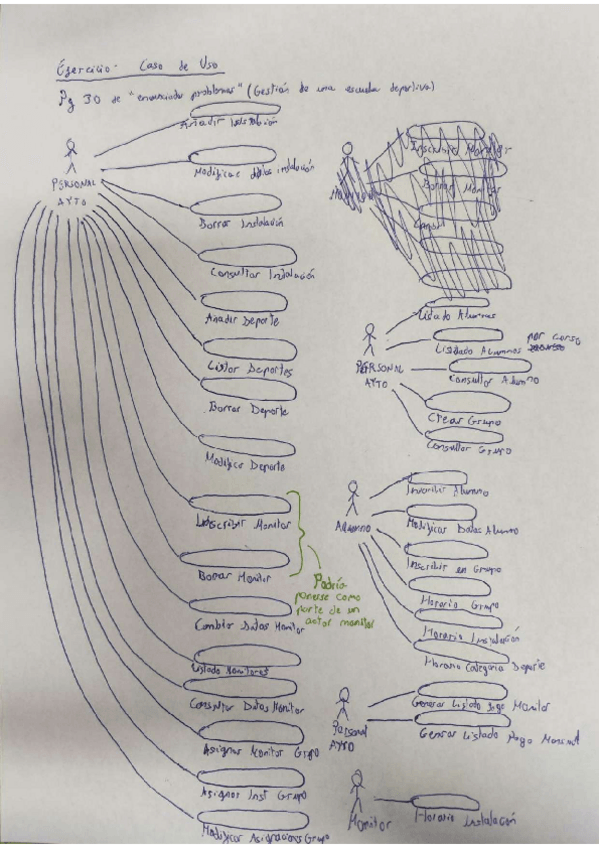 Ejercicio - Caso de Uso
Pg 30 de "enunciados problemas" (Gestión de una escuela deportiva)
PERSONAL
AYTO
Añadir Instalación
Modificar datos instalación
Borrar Instalación
Consultar Instalación
Añadir Deporte
Listar Deportes
Borrar Deporte
Modificar Deporte
Inscribir Monitor
Borrar Monitor
Cambiar Datos Monitor
Listado Monitores
Consultar Datos Monitor
Asignar Monitor Grupo
Asignar Inst Grupo
Modificar Asignaciones Grupo
Podría
ponerse como
parte de un
actor monitor
Borrar Monitor
PERSONAL
AYTO
Listado Alumnos
Listado Alumnos por curso
Consultar Alumno
Crear Grupo
Consultar Grupo
ALUMNO
Inscribir Alumno
Modificar Datos Alumno
Inscribir en Grupo
Horario Grupo
Horario Instalación
Horario Categoria Deporte
Personal
AYTO
Generar Listado Monitor
Generar Listado Pago Mensual
Monitor
Horario Instalación